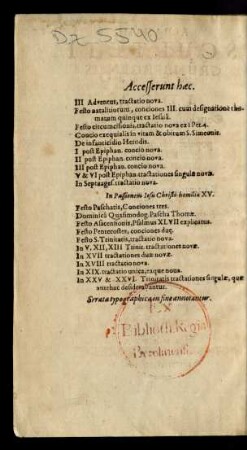 Dz 5540
Accesserunt hæc.
III Adventus, tractatio nova.
Festo natalitiorum, conciones III. cum designatione thematum quinque ex Iesaia
Festo circumcisionis, tractatio nova
Concio exequialis in vitam & obitum S. Simeonis.
De infanticidio Herodis.
I post Epiphan. concio nova.
II post Epiphan. concio nova.
III post Epiphan. concio nova.
V & VI post Epiphan. tractationes singulæ novæ.
In Septuages. tractatio nova.
In Passionem Iesu Christi homiliæ XV.
Festo Paschatis, Conciones tres.
Dominica Quasimodog. Pascha Thomæ.
Festo Ascensionis, Psalmus XLVII explicatus.
Festo Pentecostes, conciones duę.
Festo S. Trinitatis, tractatio nova.
In V. XII, XIII Trinit. tractationes novæ.
In XVII tractationes duæ novæ
In XVIII tractatio nova.
In XIX. tractatio unica, eaque nova.
In XXV & XXVI. Trinitatis tractationes singulæ, quæ
antehac desiderabantur.
Errata typographica, in fine annotantur.
Ex
Biblioth. Regia
Berolinensi.